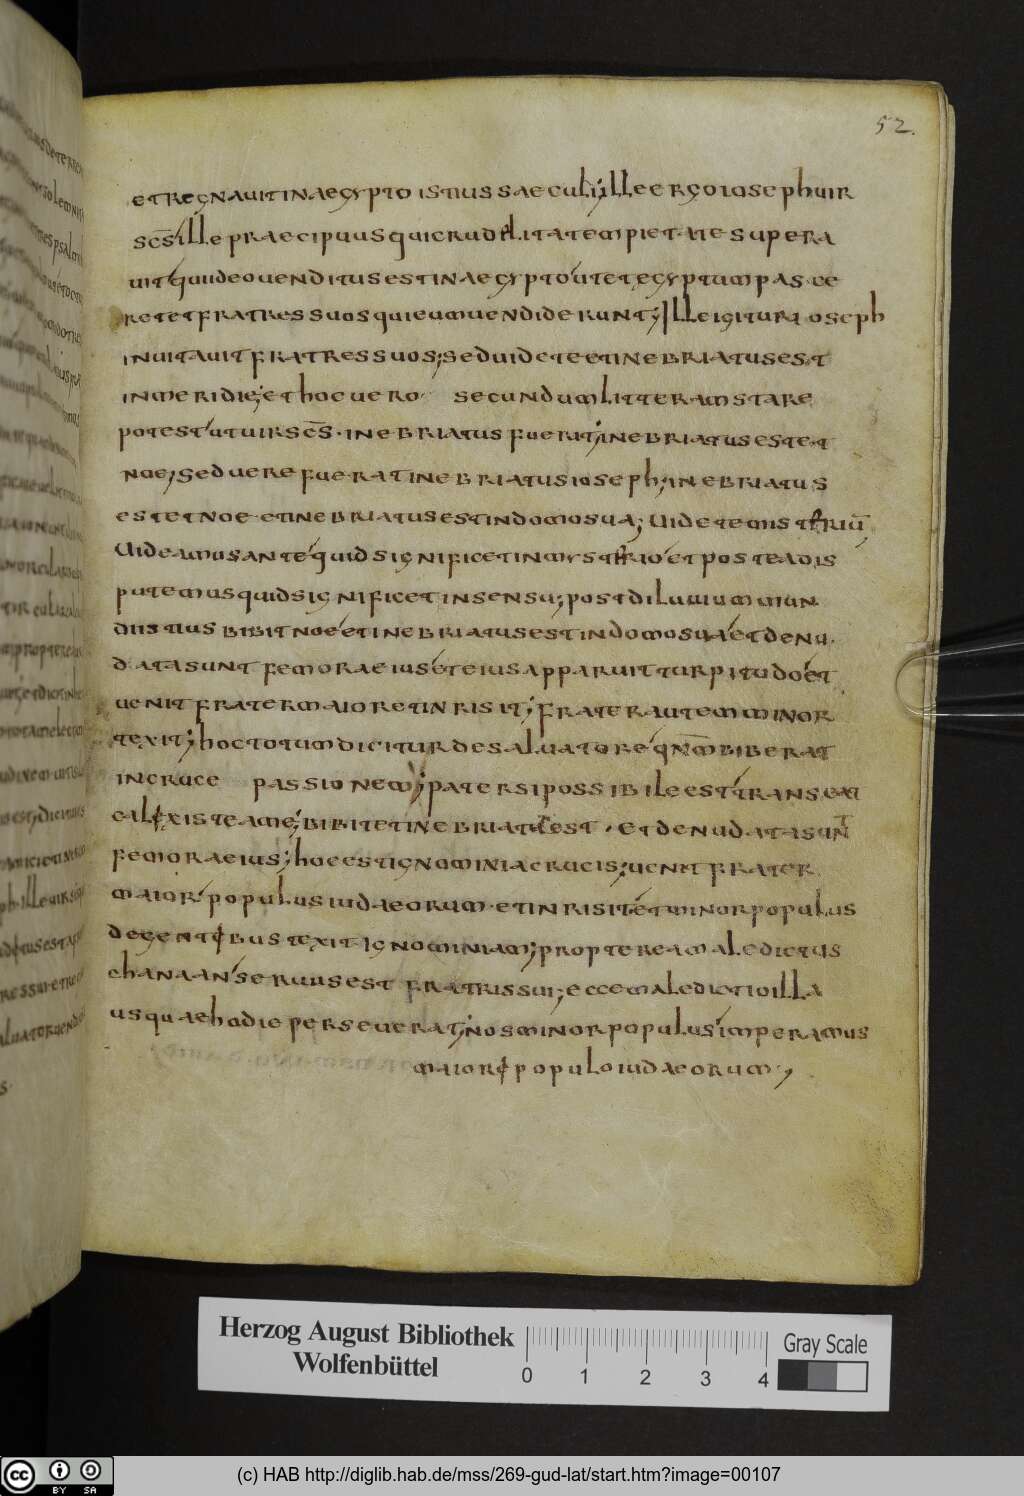 52.
et regnauit in aegypto istius saeculi; ille ergo ioseph uir
scs ille praecipuus qui crudelitatem pietate supera
uit qui ideo uenditus est in aegypto ut et egyptum pasce
ret et fratres suos qui eum uendiderunt; Ille igitur ioseph
inuitauit fratres suos; sed uidete et inebriatus est
in meridie; et hoc uero secundum litteram stare
potest ut uir scs inebriatus fuerit; inebriatus est et
noe; sed uere fuerat inebriatus ioseph; inebriatus
est et noe et inebriatus est in domo sua; Uidete misteriū
Uideamus ante quid significet in mysterio et postea dis
putemus quid significet in sensu; post diluuium mun
distius bibit noe et inebriatus est in domo sua et denu
data sunt femora eius et eius apparuit turpitudo et
uenit frater maior et inrisit; frater autem minor
texit; hoc totum dicitur de saluatore qn̄m biberat
in cruce passionem; pater si possibile est transeat
calix iste a me; bibit et inebriatus est . et denudata sunt
femora eius; hoc est ignominia crucis; uenit frater
maior populus iudaeorum et inrisit et minor populus
de gentibus texit ignominiam; propterea maledictus
chanaan seruus est fratris sui; ecce maledictio illa
usquae hodie perseuerat; nos minor populus imperamus
maiori populo iudaeorum;
Herzog August Bibliothek
Wolfenbüttel
0 1 2 3 4
Gray Scale
cc BY SA
(c) HAB http://diglib.hab.de/mss/269-gud-lat/start.htm?image=00107